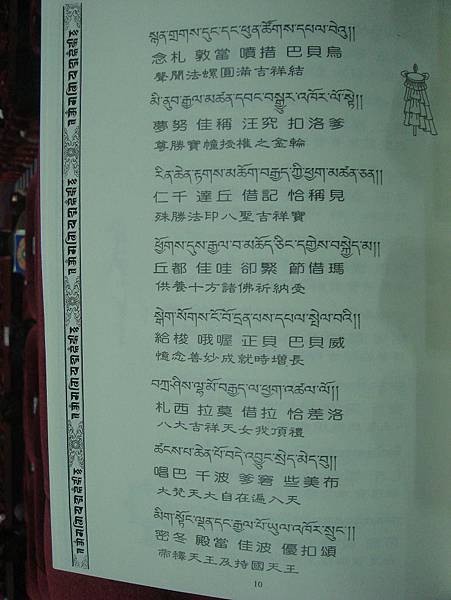 སྙན་གྲགས་དུང་དང་ཕུན་ཚོགས་དཔལ་བེའུ།།
念札 敦當 噴措 巴貝烏
聲聞法螺圓滿吉祥結
མི་ནུབ་རྒྱལ་མཚན་དབང་སྒྱུར་འཁོར་ལོ་སྟེ།།
夢努 佳稱 汪究 扣洛爹
尊勝寶幢授權之金輪
རིན་ཆེན་རྟགས་མཆོག་བརྒྱད་ཀྱི་ཕྱག་མཚན་ཅན།།
仁千 達丘 借記 恰稱見
殊勝法印八聖吉祥寶
ཕྱོགས་དུས་རྒྱལ་བ་མཆོད་ཅིང་དགྱེས་བསྐྱེད་མ།།
丘都 佳哇 卻緊 節借瑪
供養十方諸佛祈納受
སྒེག་སོགས་ངོ་བོ་དྲན་པས་དཔལ་སྤེལ་བའི།།
給梭 哦喔 正貝 巴貝威
憶念善妙成就時增長
བཀྲ་ཤིས་ལྷ་མོ་བརྒྱད་ལ་ཕྱག་འཚལ་ལོ།།
札西 拉莫 借拉 恰差洛
八大吉祥天女我頂禮
ཚངས་པ་ཆེན་པོ་བདེ་འབྱུང་སྲེད་མེད་བུ།།
唱巴 千波 爹窘 些美布
大梵天大自在遍入天
མིག་སྟོང་ལྡན་དང་རྒྱལ་པོ་ཡུལ་འཁོར་སྲུང་།།
密冬 殿當 佳波 優扣頌
帝釋天王及持國天王
10